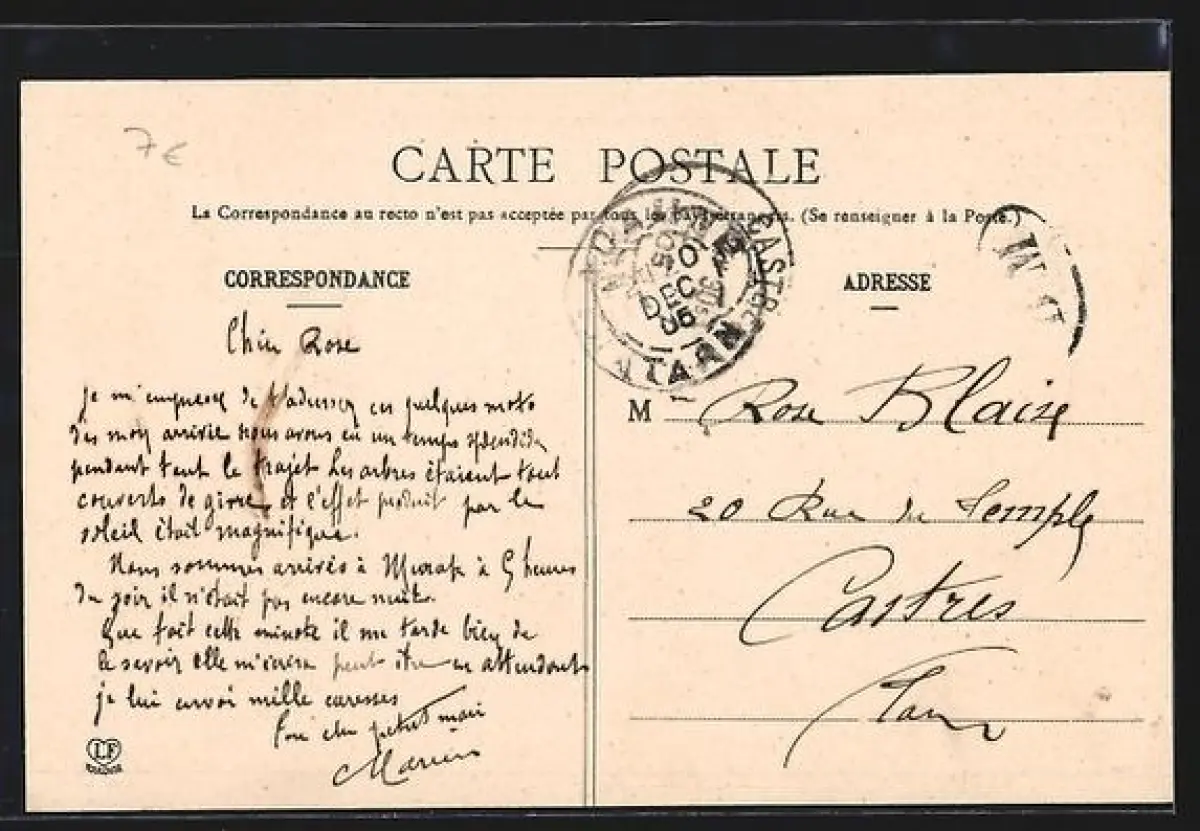 7€
CARTE POSTALE
La Correspondance au recto n'est pas acceptée par tous les pays étrangers. (Se renseigner à la Poste.)
CORRESPONDANCE
ADRESSE
CASTRES
10
DEC
05
TARN
Rose
je m'empresse de t'adresser ces quelques mots
des mon arrivée nous avons eu un temps splendide
pendant tout le trajet Les arbres étaient tout
couverts de givre et l'effet produit par le
soleil était magnifique.
Nous sommes arrivés à Murat à 5 heures
du soir il n'était pas encore nuit.
Que fait cette minote il me tarde bien de
le savoir elle m'écrira peut être en attendant
je lui envoi mille caresses
Ton cher petit mari
Marius
LF
Mme Rose Blaise
20 Rue du Temple
Castres
Tarn